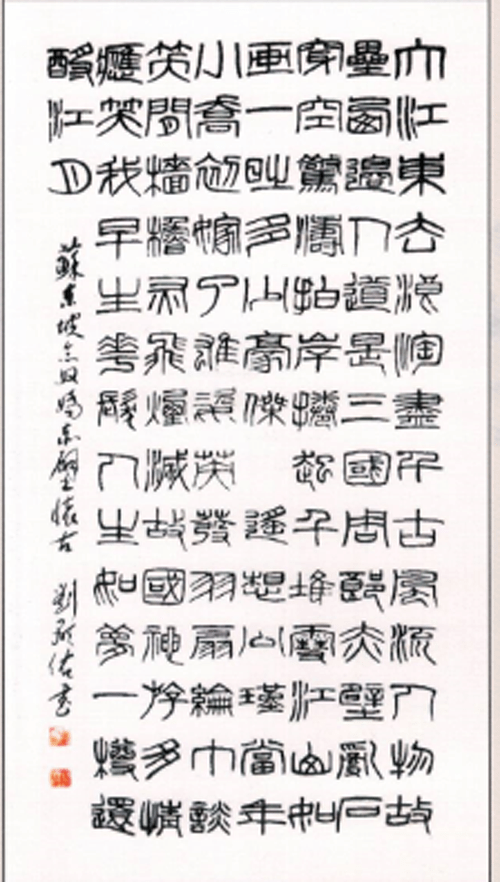 大江東去浪淘盡千古風流人物故
壘西邊人道是三國周郎赤壁亂石
穿空驚濤拍岸捲起千堆雪江山如
畫一時多少豪傑 遙想公瑾當年
小喬初嫁了雄姿英發羽扇綸巾談
笑間檣櫓灰飛煙滅故國神遊多情
應笑我早生華髮人生如夢一樽還
酹江月
蘇東坡念奴嬌赤壁懷古 劉 書